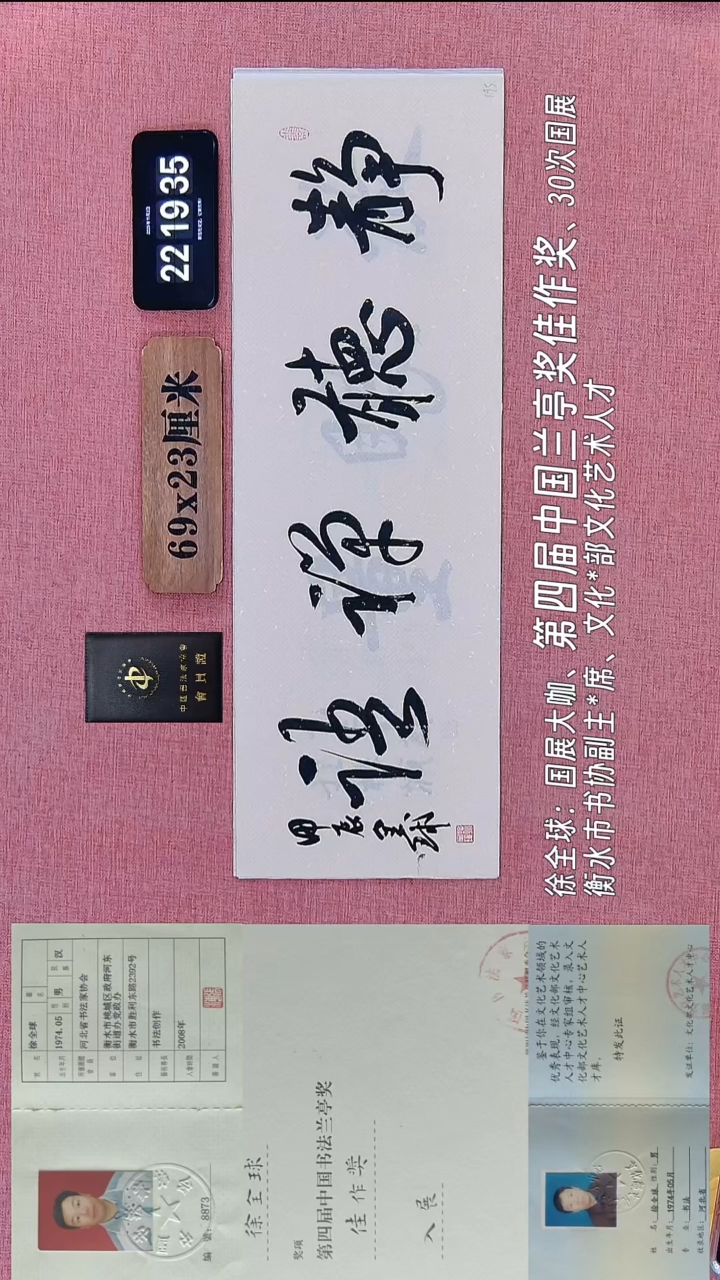 22 19 35
69x23厘米
中国书法家协会
會員證
静聽禅语
甲辰全球
徐全球：国展大咖、第四届中国兰亭奖佳作奖、30次国展
衡水市书协副主*席、文化*部文化艺术人才
编号：8873
姓名 徐全球
出生年月 1974.05 性别 男 民族 汉
河北省书法家协会
衡水市桃城区政府河东
街道办党政办
衡水市胜利东路2392号
书法创作
入会时间 2008年
徐全球
奖项
第四届中国书法兰亭奖
佳作奖
入展
姓名：徐全球 性别：男
出生年月：1974年05月
专业：书法
河北省
鉴于你在文化艺术领域的
优秀表现，经文化部文化艺术
人才中心专家组审核，录入文
化部文化艺术人才中心艺术人
才库。
特发此证
发证单位：文化部文化艺术人才中心